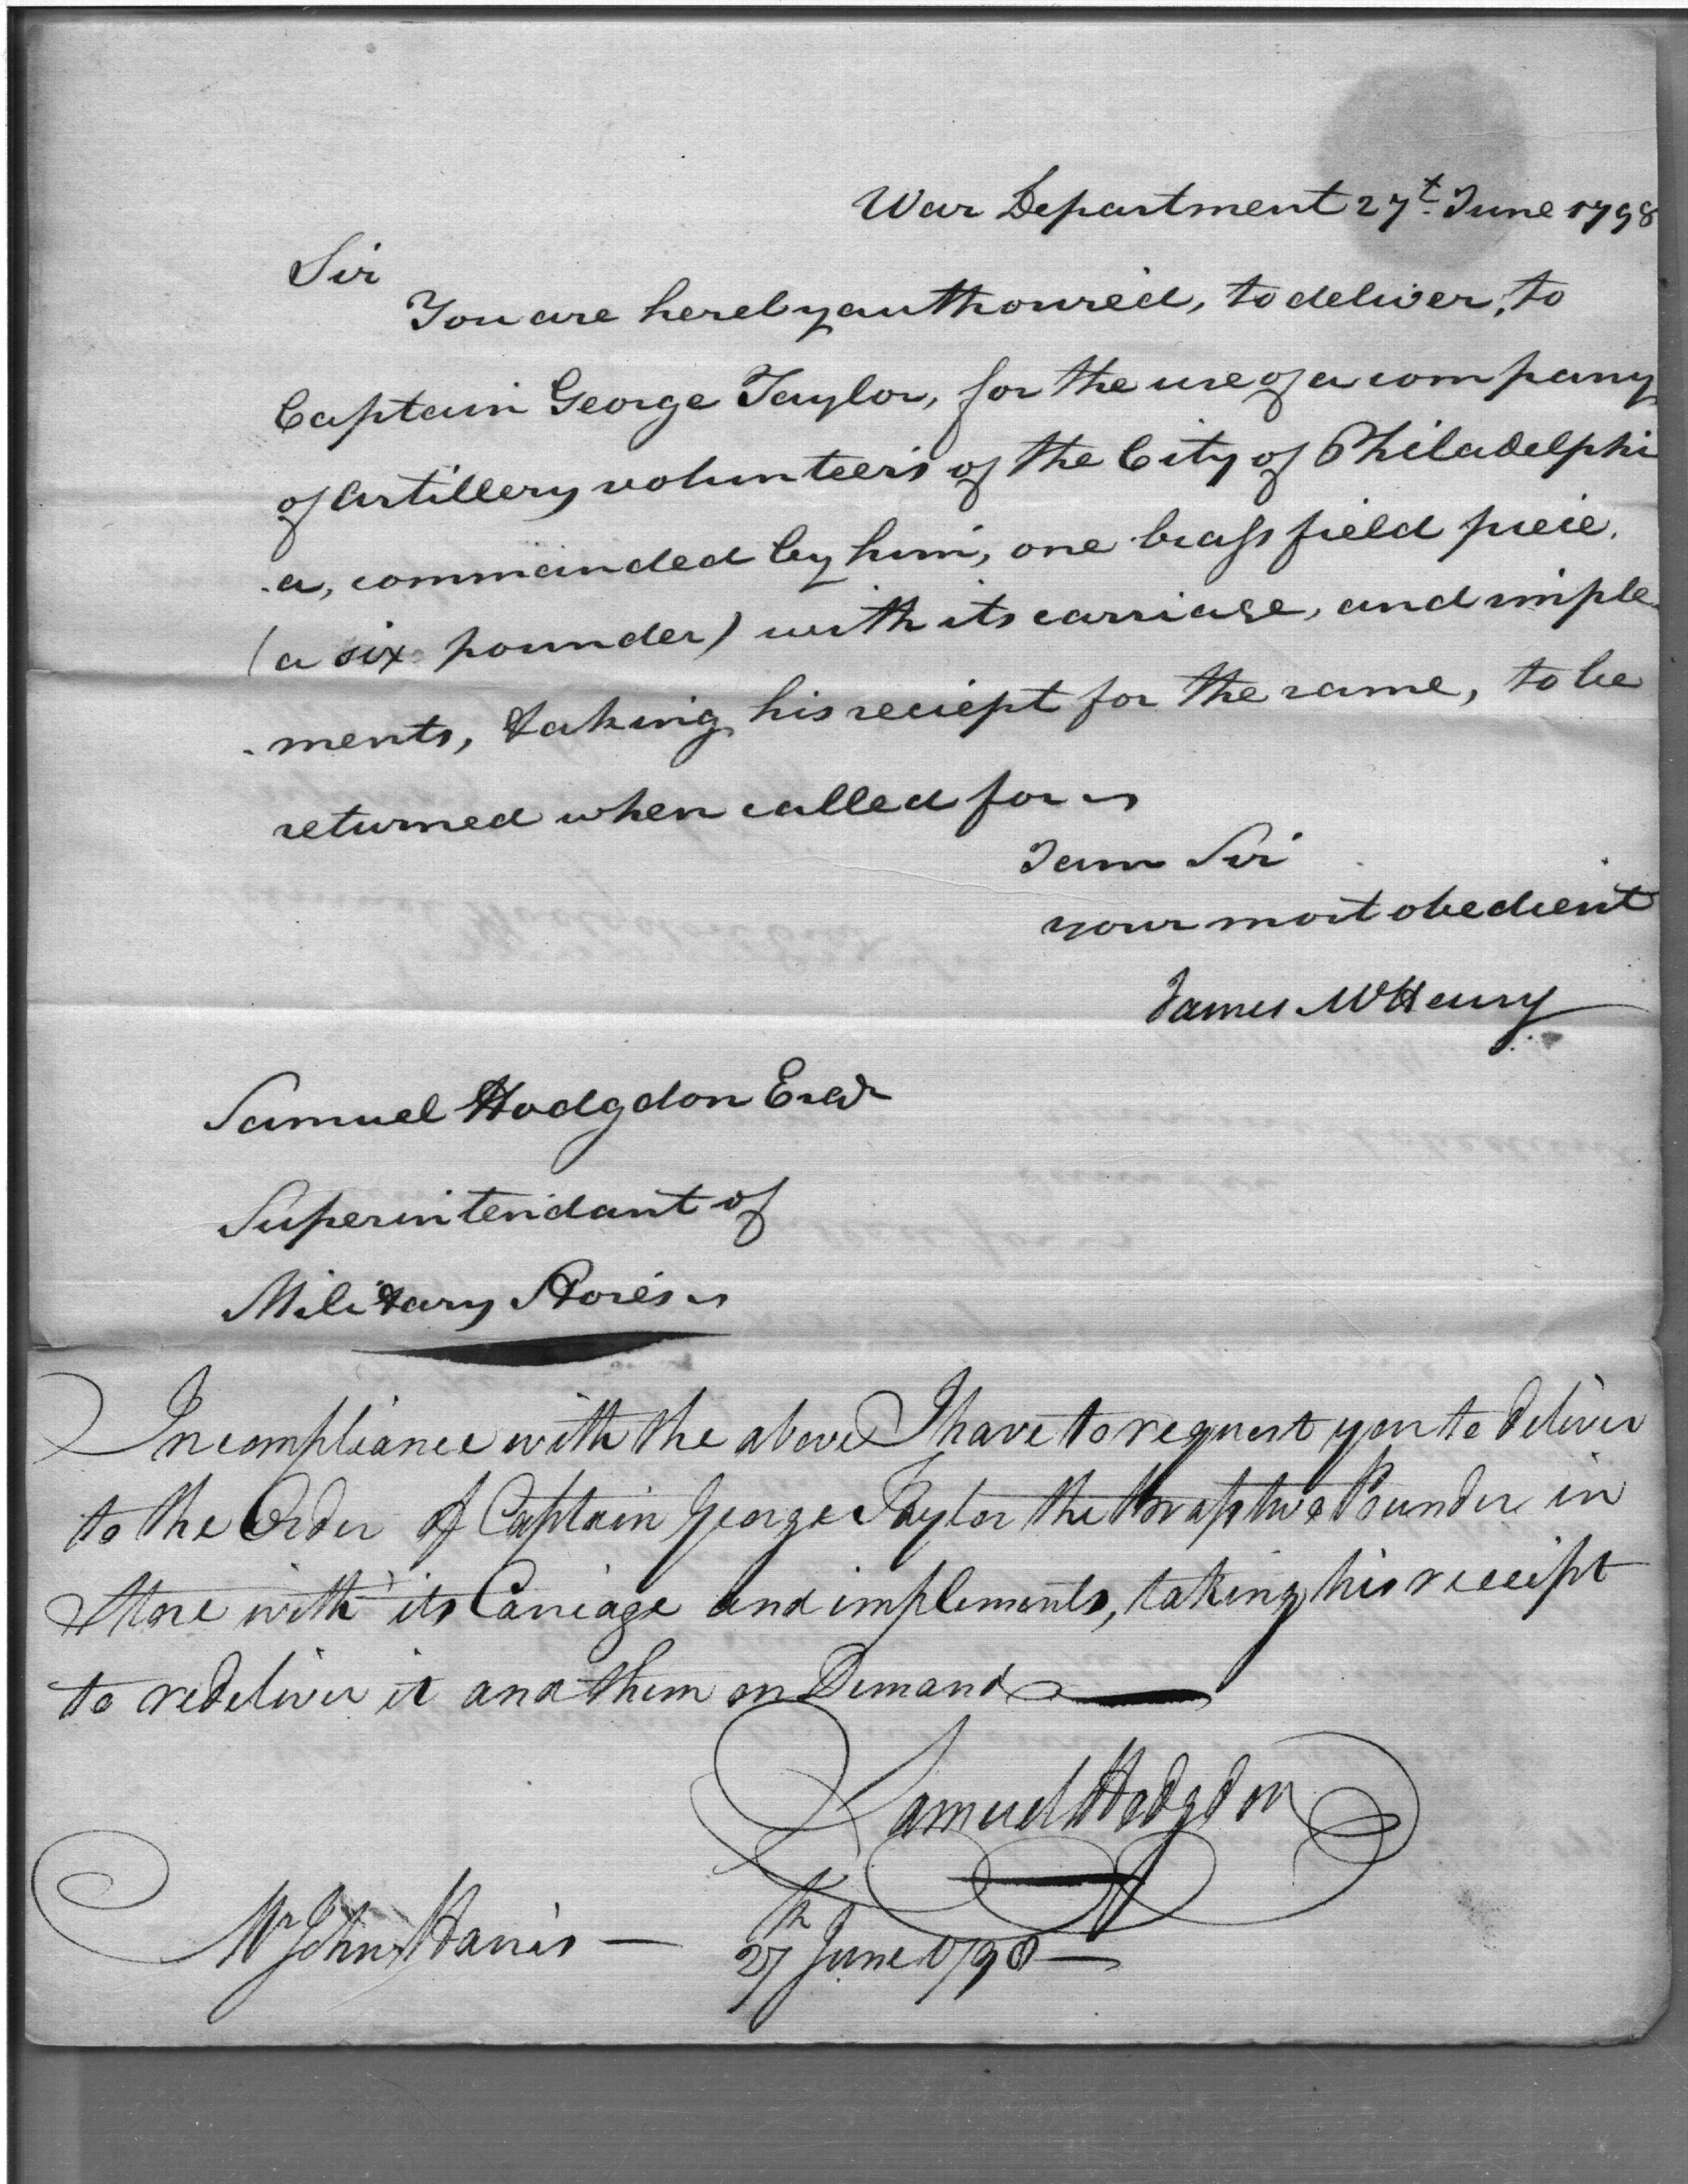 War Department 27t. June 1798
Sir
You are hereby authoured, to deliver, to
Captain George Taylor, for the use of a company
of artillery volunteers of the City of Philadelphi
-a, commanded by him, one brass field piece.
(a six pounder) with its carriage, and imple
-ments, taking his reciept for the same, to be
returned when called for
I am Sir
your most obedient
James McHenry
Samuel Hodgdon Esqr
Superintendant of
Military Stores
In compliance with the above I have to request you to deliver
to the Order of Captain George Taylor the brass two Pounder in
Store with its Carriage and implements, taking his receipt
to redeliver it and them on Demand
Samuel Hodgdon
Mr John Harris — 27th June 1798 —